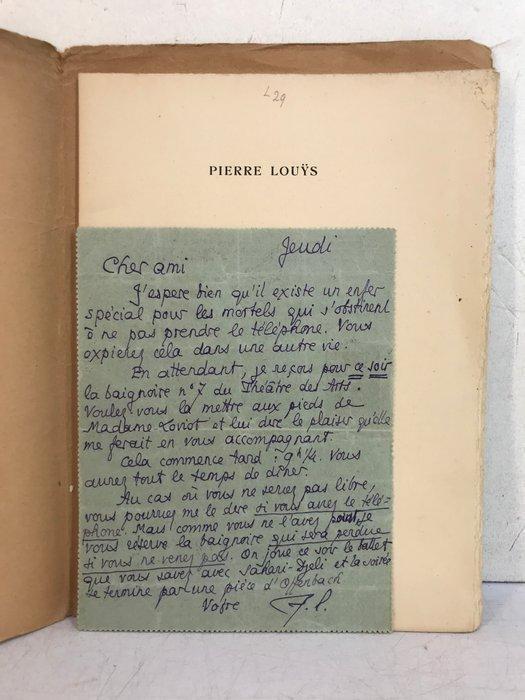 L29
PIERRE LOUŸS
Jeudi
Cher ami
J'espere bien qu'il existe un enfer
spécial pour les mortels qui s'obstinent
à ne pas prendre le téléphone. Vous
expierez cela dans une autre vie.
En attendant, je reçois pour ce soir
la baignoire n° 7 du Théâtre des Arts.
Voulez vous la mettre aux pieds de
Madame Loviot et lui dire le plaisir qu'elle
me ferait en vous accompagnant.
Cela commence tard : 9h 1/4. Vous
aurez tout le temps de dîner.
Au cas où vous ne seriez pas libre,
vous pourriez me le dire si vous aviez le télé=
phone. Mais comme vous ne l'avez point, je
vous réserve la baignoire qui sera perdue
si vous ne venez pas. On joue ce soir le ballet
que vous savez avec Sahari-Djeli et la soirée
se termine par une pièce d'Offenbach
Votre P.L.